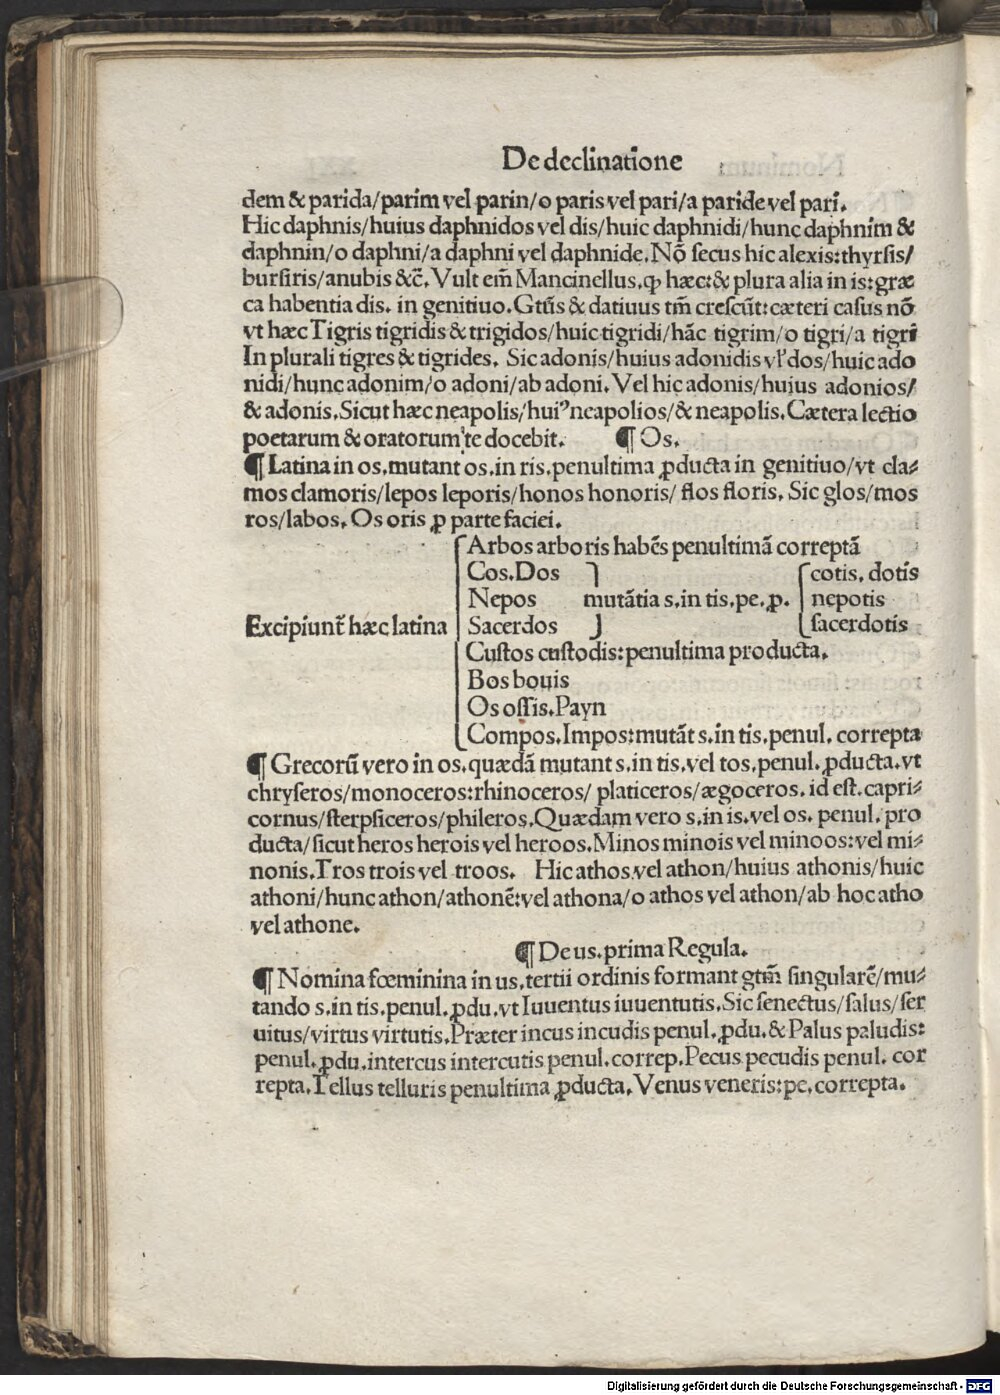 De declinatione
dem & parida/parim vel parin/o paris vel pari/a paride vel pari.
Hic daphnis/huius daphnidos vel dis/huic daphnidi/hunc daphnim &
daphnin/o daphni/a daphni vel daphnide. Nō secus hic alexis:thyrsis/
bursiris/anubis &c̄. Vult em̄ Mancinellus.ꝙ hæc:& plura alia in is:græ
ca habentia dis. in genitiuo.Gtūs & datiuus tm̄ crescūt:cæteri casus nō
vt hæc Tigris tigridis & trigidos/huic tigridi/hāc tigrim/o tigri/a tigri
In plurali tigres & tigrides. Sic adonis/huius adonidis vl' dos/huic ado
nidi/hunc adonim/o adoni/ab adoni. Vel hic adonis/huius adonios/
& adonis.Sicut hæc neapolis/huiꝰ neapolios/& neapolis.Cætera lectio
poetarum & oratorum te docebit. ¶ Os.
¶ Latina in os.mutant os.in ris.penultima ꝓducta in genitiuo/vt cla⸗
mos clamoris/lepos leporis/honos honoris/ flos floris. Sic glos/mos
ros/labos. Os oris ꝓ parte faciei.
Arbos arboris habēs penultimā correptā
Cos.Dos cotis. dotis
Nepos mutātia s.in tis.pe.ꝓ. nepotis
Excipiunt̄ hæc latina Sacerdos sacerdotis
Custos custodis:penultima producta.
Bos bouis
Os ossis.Payn
Compos.Impos:mutāt s.in tis.penul. correpta
¶ Grecorū vero in os.quædā mutant s.in tis.vel tos.penul. ꝓducta.vt
chryseros/monoceros:rhinoceros/ platiceros/ægoceros. id est.capri⸗
cornus/sterpsiceros/phileros.Quædam vero s.in is.vel os. penul. pro
ducta/sicut heros herois vel heroos.Minos minois vel minoos:vel mi⸗
nonis.Tros trois vel troos. Hic athos vel athon/huius athonis/huic
athoni/hunc athon/athonē:vel athona/o athos vel athon/ab hoc atho
vel athone.
¶ De us.prima Regula.
¶ Nomina fœminina in us.tertii ordinis formant gtm̄ singularē/mu⸗
tando s.in tis.penul.ꝓdu.vt Iuuentus iuuentutis.Sic senectus/salus/ser
uitus/virtus virtutis.Præter incus incudis penul.ꝓdu.& Palus paludis:
penul.ꝓdu.intercus intercutis penul.correp.Pecus pecudis penul. cor
repta.Tellus telluris penultima ꝓducta. Venus veneris:pe.correpta.
Digitalisierung gefördert durch die Deutsche Forschungsgemeinschaft - DFG